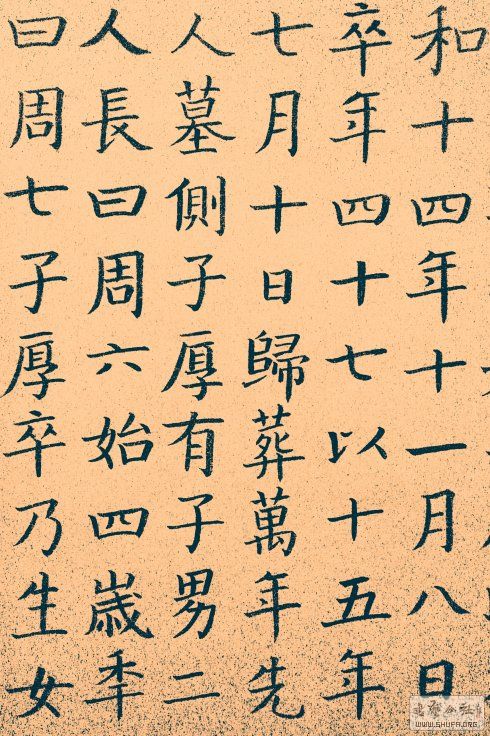 和十四年十一月八日
卒年四十七以十五年
七月十日歸葬萬年先
人墓側子厚有子男二
人長曰周六始四歲季
曰周七子厚卒乃生女
WWW.SHUFA.ORG